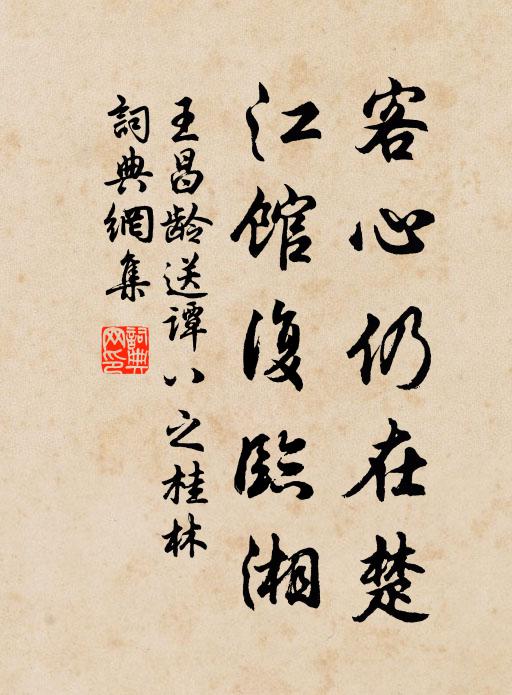 客心仍在楚
江馆復臨湘
王昌龄送谭八之桂林
詞典網集
詞典网印